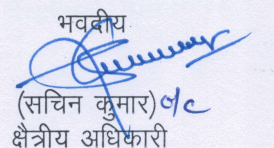 भवदीय
(सचिन कुमार) o/c
क्षैत्रीय अधिकारी